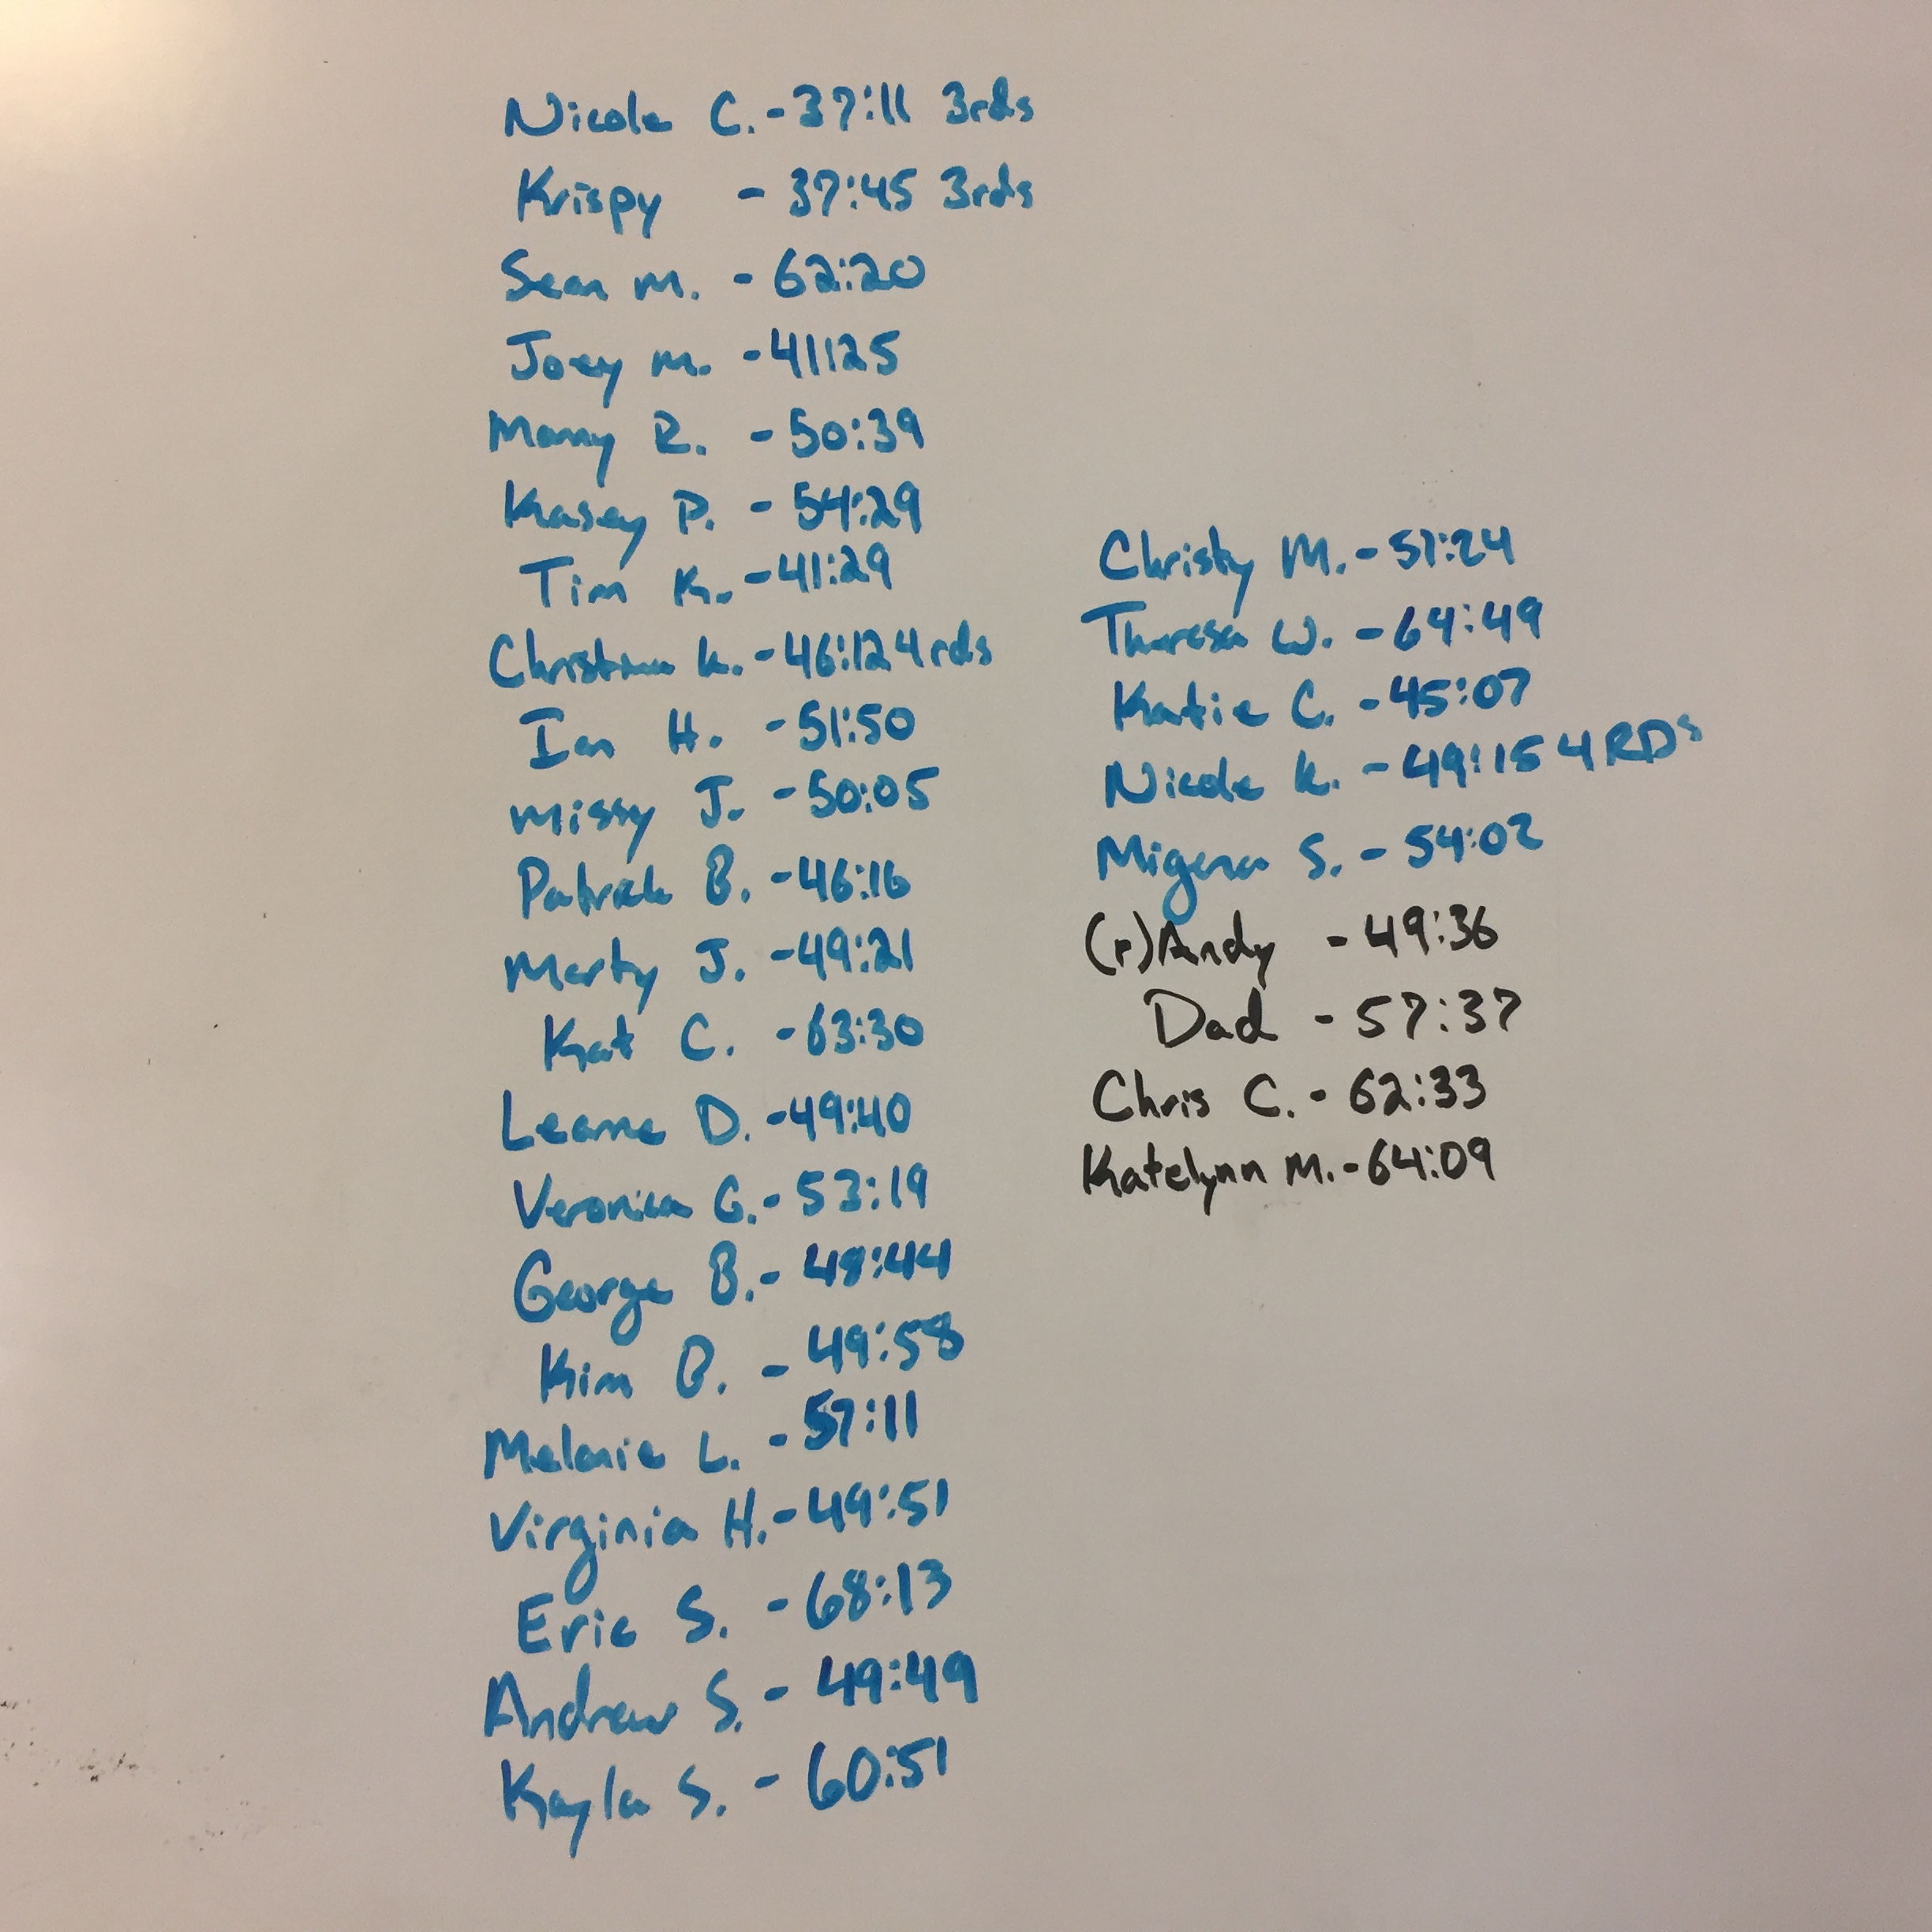 Nicole C. - 37:11 3rds
Krispy - 37:45 3rds
Sean M. - 62:20
Joey M. - 41:25
Manny R. - 50:39
Kasey P. - 54:29
Tim K. - 41:29
Christina K. - 46:12 4rds
Ian H. - 51:50
Missy J. - 50:05
Patrick B. - 46:16
Marty J. - 49:21
Kat C. - 63:30
Leanne D. - 49:40
Veronica G. - 53:19
George B. - 48:44
Kim B. - 49:58
Melanie L. - 57:11
Virginia H. - 49:51
Eric S. - 68:13
Andrew S. - 49:49
Kayla S. - 60:51
Christy M. - 51:24
Theresa W. - 64:49
Katie C. - 45:07
Nicole K. - 49:15 4 RDs
Migena S. - 54:02
(r) Andy - 49:36
Dad - 57:37
Chris C. - 62:33
Katelynn M. - 64:09